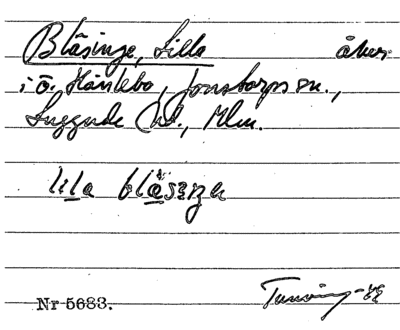 Blåsinge, Lilla åker
i ö. Häslebo, Jonstorps sn.,
Luggude hd., Mlm.
lila blåsiŋa
Nr 5683.